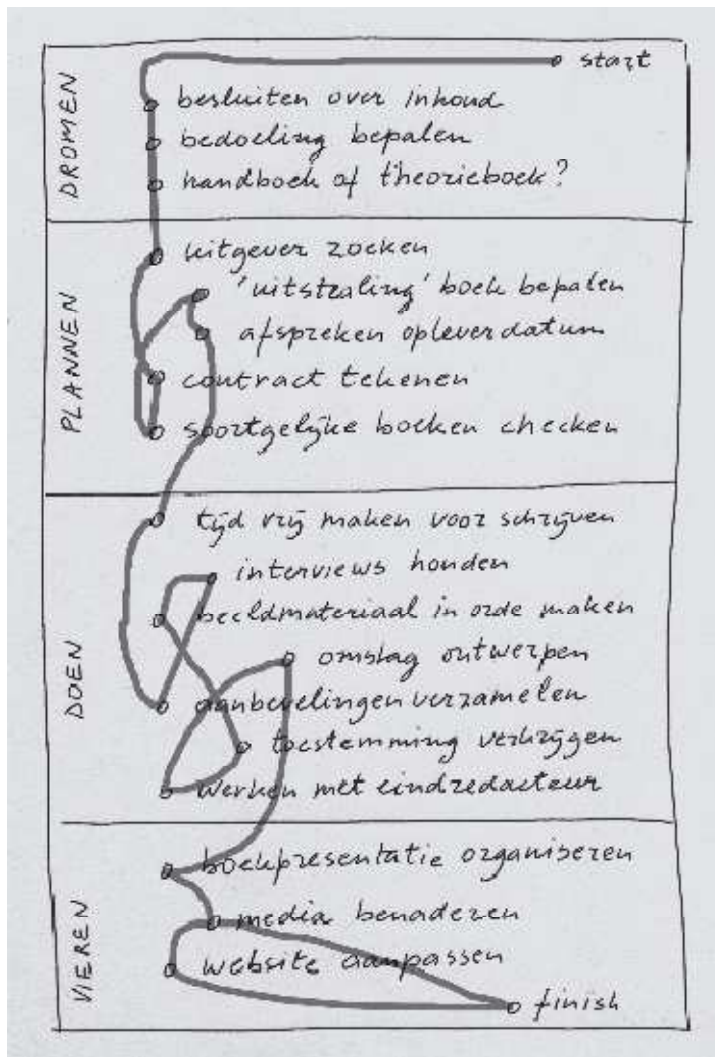 DROMEN
start
besluiten over inhoud
bedoeling bepalen
handboek of theorieboek?
PLANNEN
uitgever zoeken
'uitstraling' boek bepalen
afspreken opleverdatum
contract tekenen
soortgelijke boeken checken
DOEN
tijd vrij maken voor schrijven
interviews houden
beeldmateriaal in orde maken
omslag ontwerpen
aanbevelingen verzamelen
toestemming verkrijgen
werken met eindredacteur
VIEREN
boekpresentatie organiseren
media benaderen
website aanpassen
finish